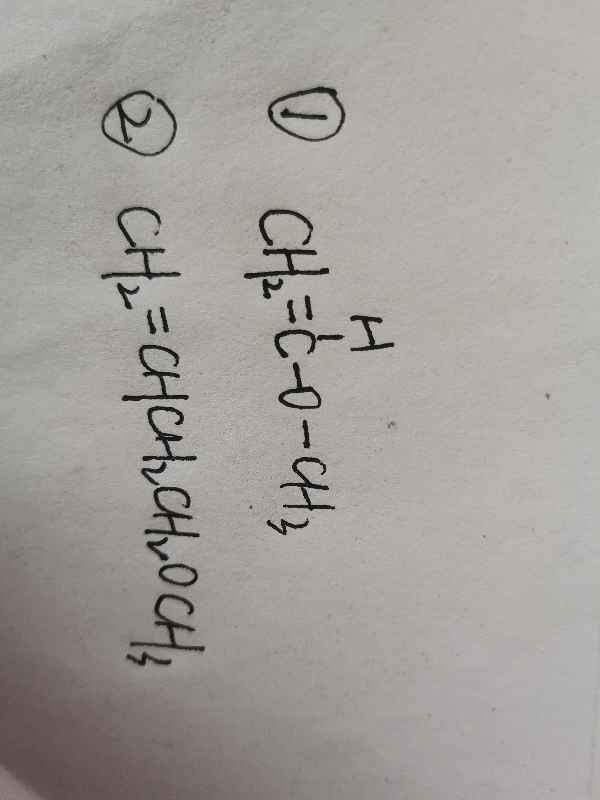 ① CH₂=C-O-CH₃
H
② CH₂=CHCH₂CH₂OCH₃